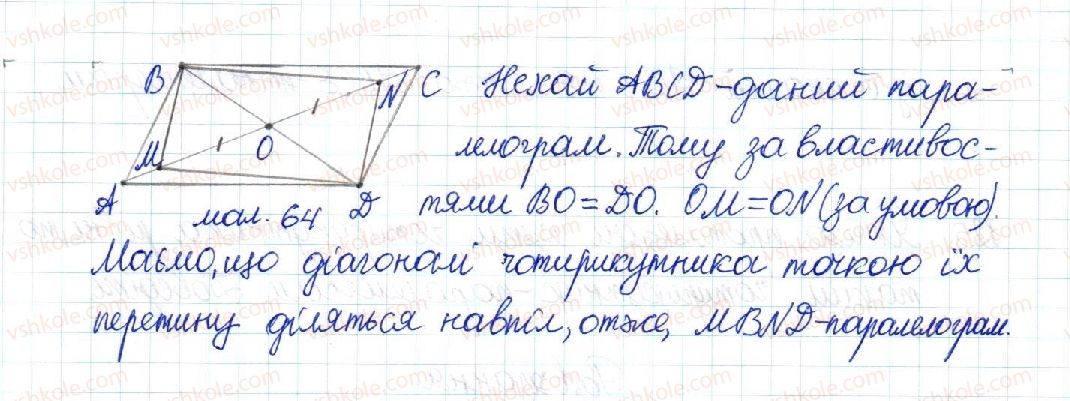 B C Нехай ABCD – даний пара-
N
M O лелограм. Тому за властивос-
A мал. 64 D тями BO = DO. OM = ON (за умовою).
Маємо, що діагоналі чотирикутника точкою їх
перетину діляться навпіл, отже, MBND – паралелограм.
vshkole.com